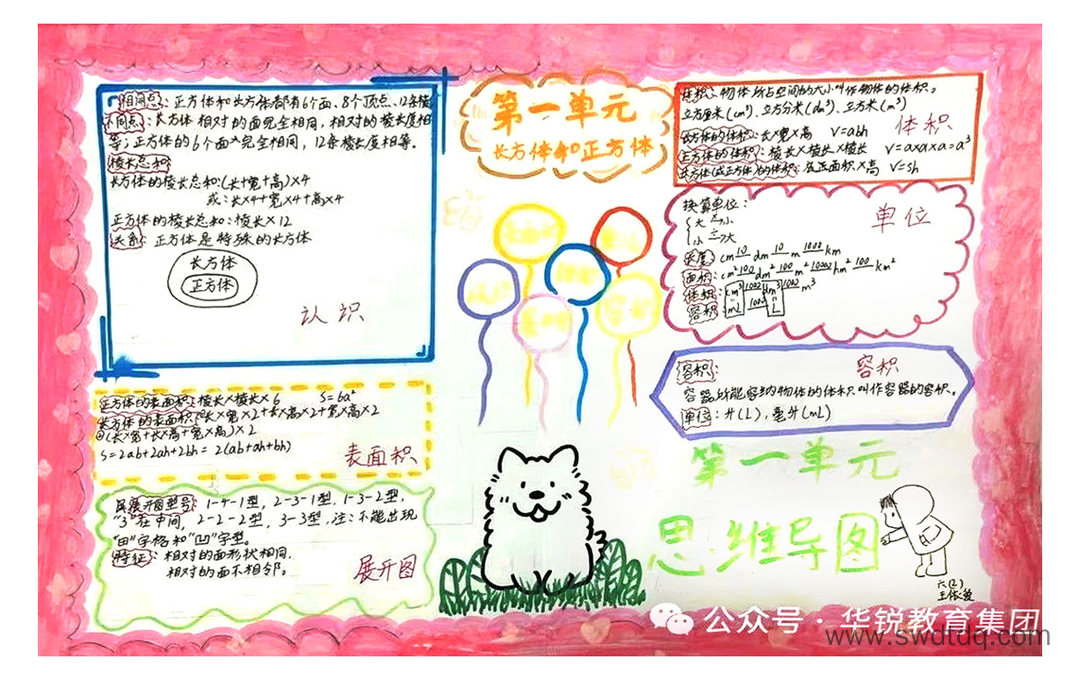 第一单元
长方体和正方体
相同点：正方体和长方体都有6个面、8个顶点、12条棱
不同点：长方体相对的面完全相同，相对的棱长度相
等；正方体的6个面完全相同，12条棱长度相等。
棱长总和
长方体的棱长总和:(长+宽+高)×4
或：长×4+宽×4+高×4
正方体的棱长总和：棱长×12
关系：正方体是特殊的长方体
长方体
正方体
认识
正方体的表面积：棱长×棱长×6 S=6a²
长方体的表面积：长×宽×2+长×高×2+宽×高×2
②(长×宽+长×高+宽×高)×2
S=2ab+2ah+2bh=2(ab+ah+bh)
表面积
展开图型号：1-4-1型，2-3-1型，1-3-2型，
"3"在中间，2-2-2型，3-3型，注：不能出现
"田"字格和"凹"字型。
特征：相对的面形状相同，
相对的面不相邻。
展开图
体积：物体所占空间的大小叫作物体的体积。
立方厘米(cm³)、立方分米(dm³)、立方米(m³)
长方体的体积：长×宽×高 V=abh
正方体的体积：棱长×棱长×棱长 V=a×a×a=a³
长方体(或正方体)的体积：底面积×高 V=sh
体积
换算单位：
大→小
小→大
长度：cm 10 dm 10 m 1000 km
面积：cm² 100 dm² 100 m² 10000 hm² 100 km²
体积：cm³ 1000 dm³ 1000 m³
容积：mL 1000 L
单位
容积：
容器所能容纳物体的体积叫作容器的容积。
单位：升(L)，毫升(mL)
容积
第一单元
思维导图
六(2)
公众号·华锐教育集团
www.swdtdq.com